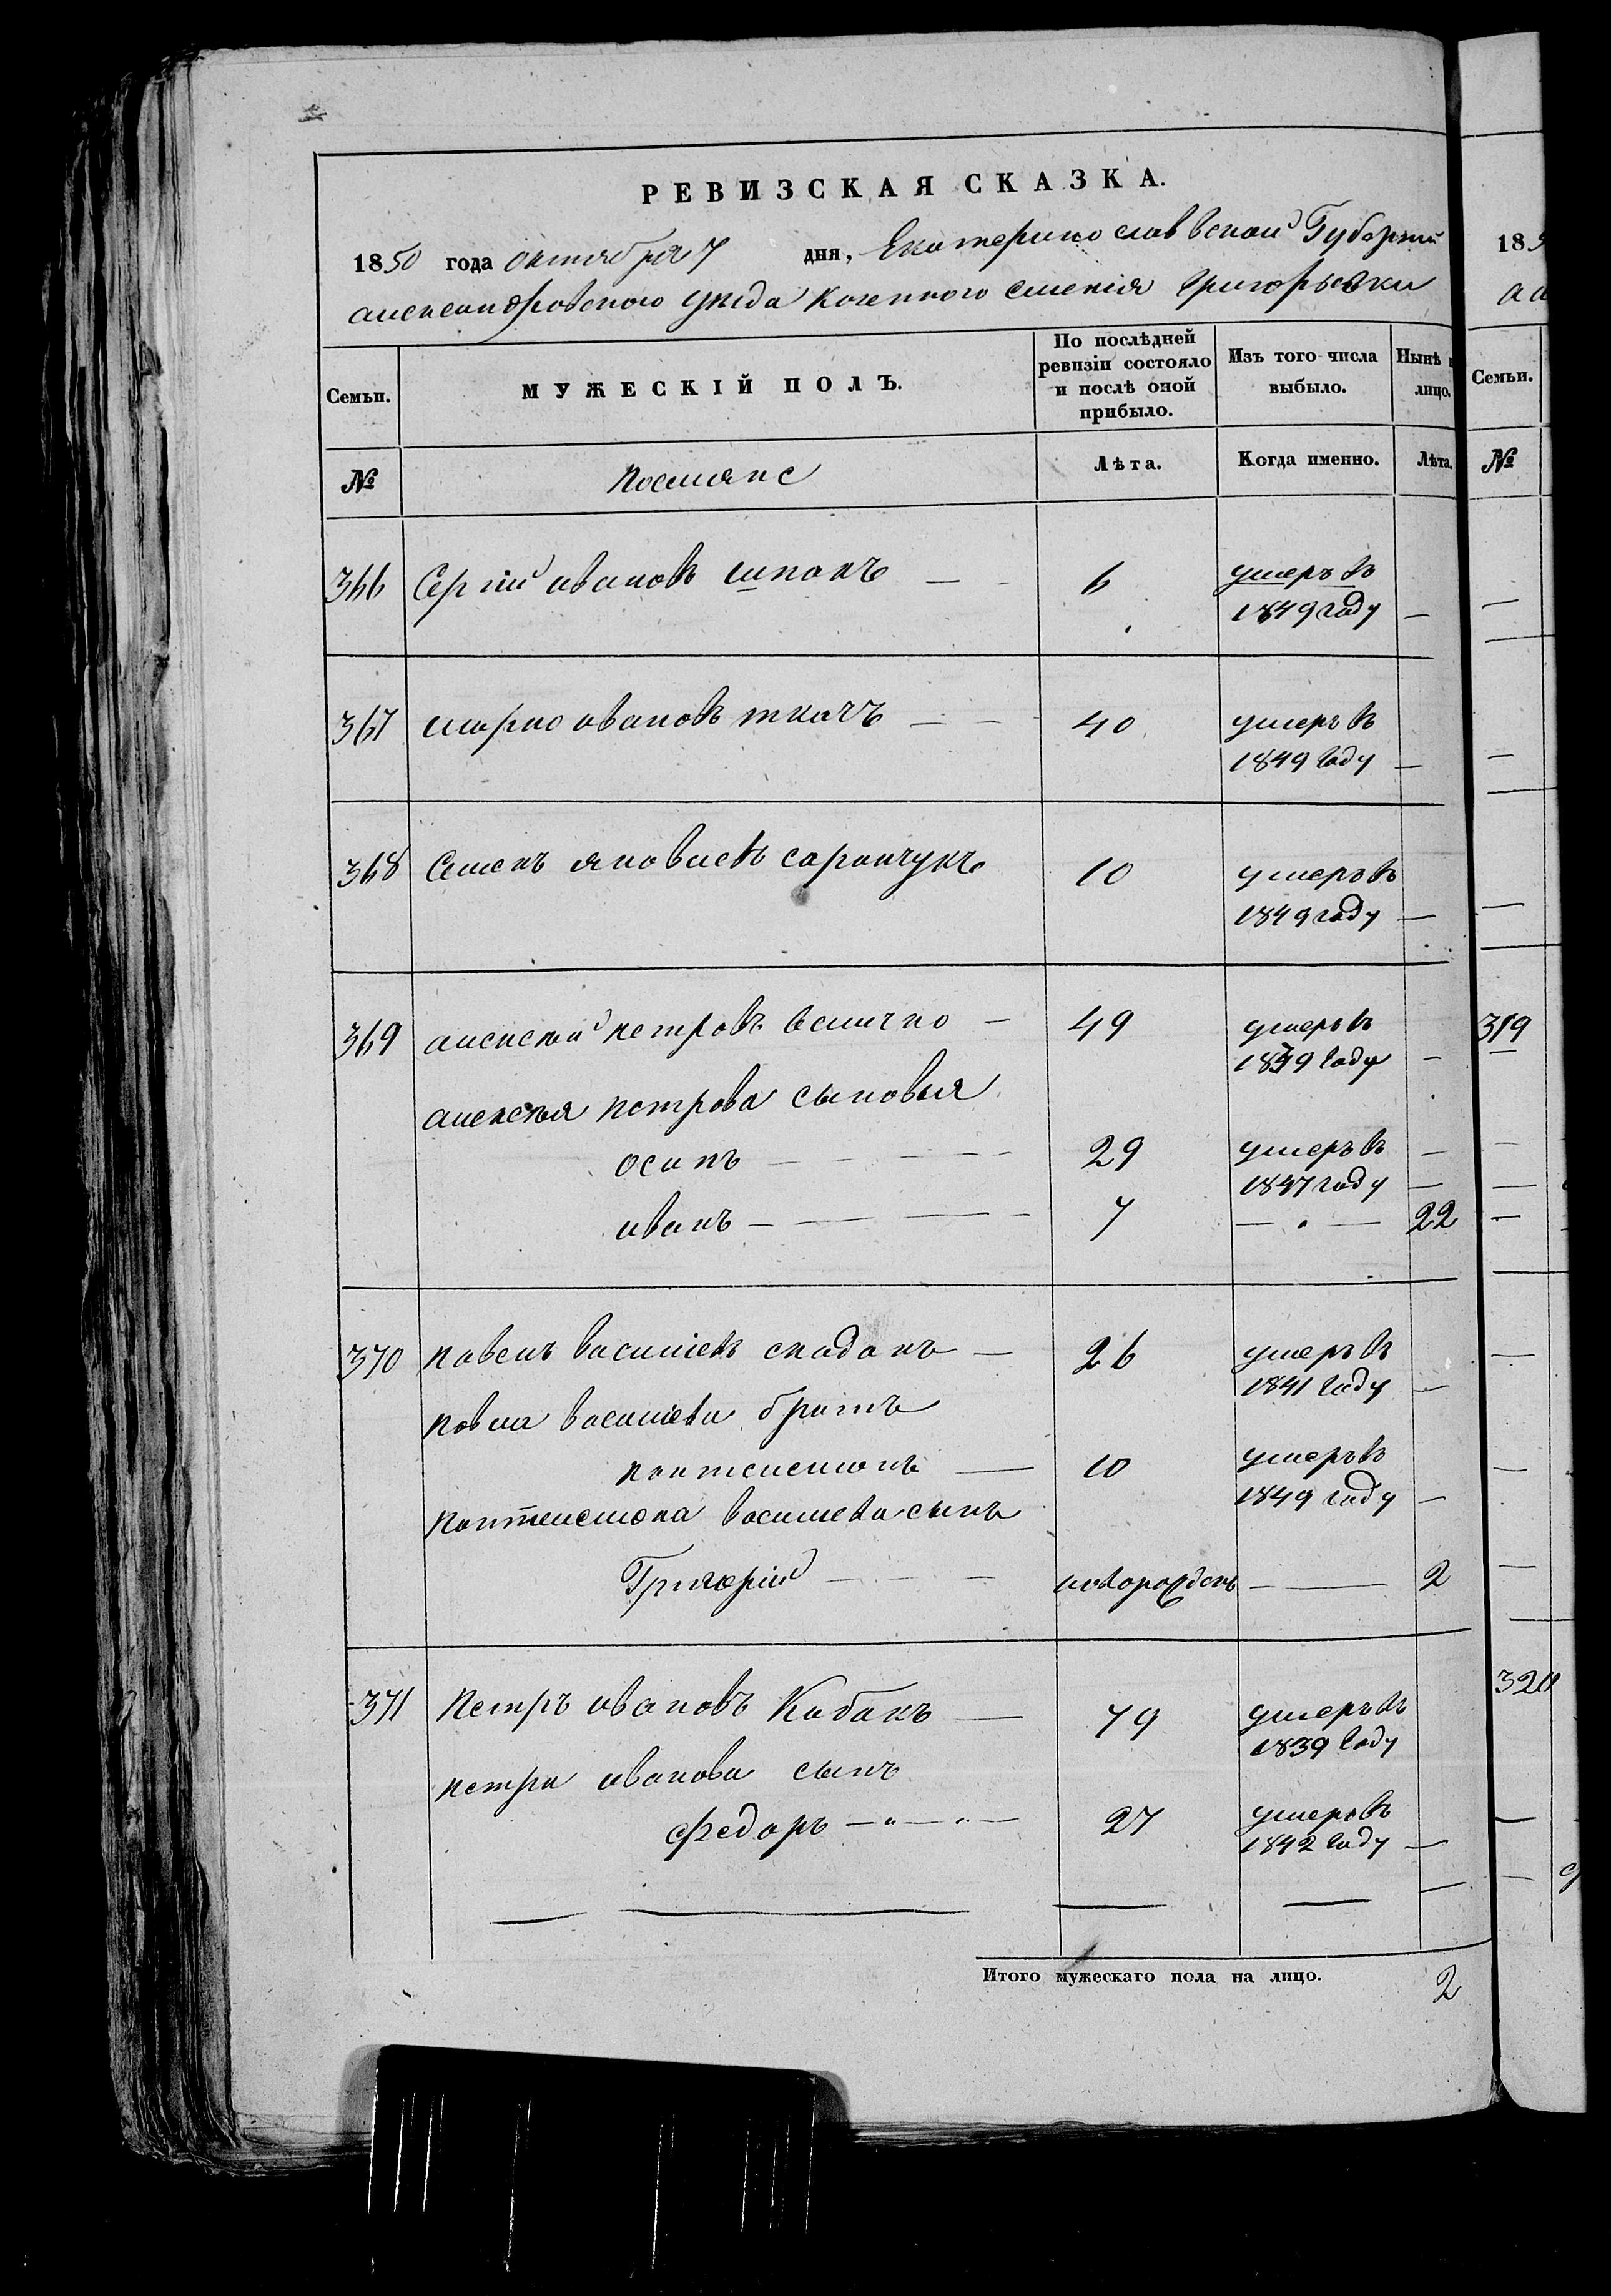 РЕВИЗСКАЯ СКАЗКА.
1850 года октября 7 дня, Екатеринославской Губернии
александровского уезда Казенного селения Григорьевки
Семьи.
МУЖЕСКІЙ ПОЛЪ.
По послѣдней ревизіи состояло и послѣ оной прибыло.
Изъ того числа выбыло.
Нынѣ
лицо.
№
Поселяне
Лѣта.
Когда именно.
Лѣта.
366 Сергій ивановъ шпакъ 6 умеръ въ
1849 году
367 марко ивановъ ткачъ 40 умеръ въ
1849 году
368 Семенъ яковлевъ саранчукъ 10 умеръ въ
1849 году
369 алексей петровъ величко 49 умеръ въ
1849 году
алексея петрова сыновья
осипъ 29 умеръ въ
1847 году
иванъ 7 22
370 павелъ василіевъ скадакъ 26 умеръ въ
1841 году
павла василіева братъ
пантелемонъ 10 умеръ въ
1849 году
пантелемона василева сынъ
Григорій новорожденъ 2
371 Петръ ивановъ Кабакъ 79 умеръ въ
1839 году
петра иванова сынъ
федоръ 27 умеръ въ
1842 году
Итого мужескаго пола на лицо. 2
Семьи.
№
319
320